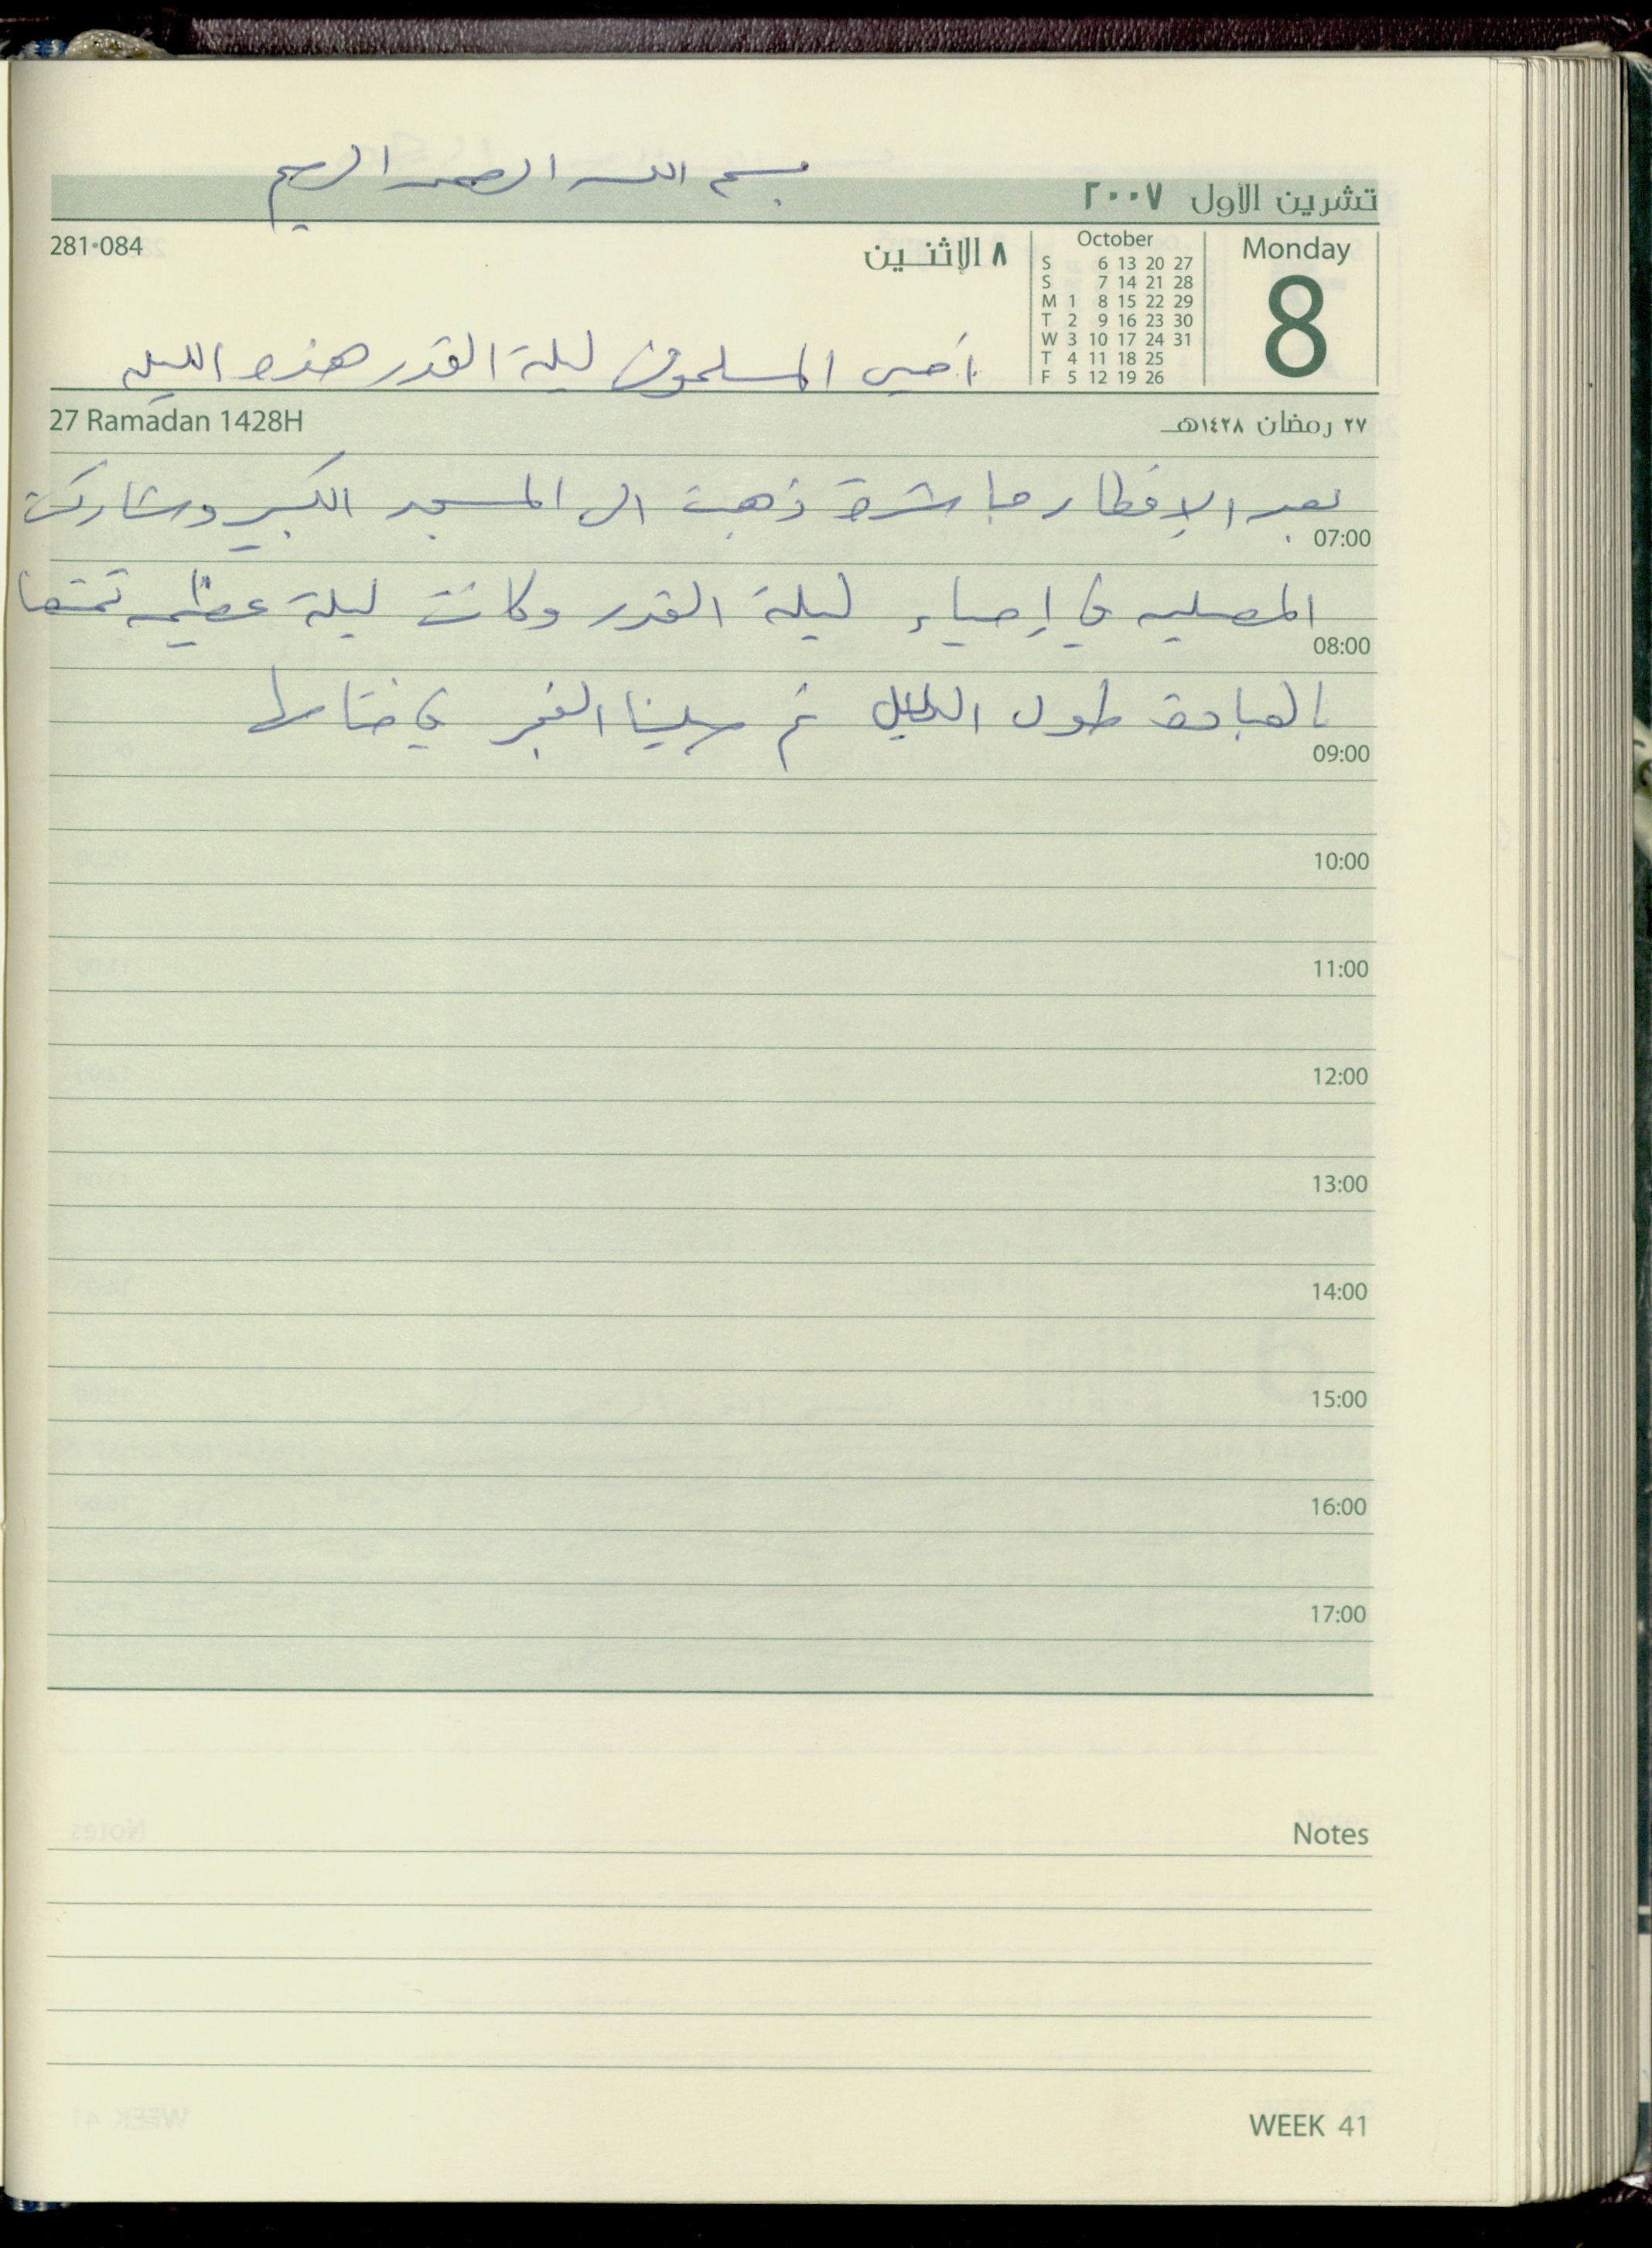 بسم الله الرحمن الرحيم
تشرين الأول ٢٠٠٧
281•084
٨ الإثنـين
October
S 6 13 20 27
S 7 14 21 28
M 1 8 15 22 29
T 2 9 16 23 30
W 3 10 17 24 31
T 4 11 18 25
F 5 12 19 26
Monday
8
أحيى المسلمون ليلة القدر هذه الليلة
27 Ramadan 1428H
٢٧ رمضان ١٤٢٨هـ
بعد الإفطار مباشرة ذهبت الى المسجد الكبير وشاركت
07:00
المصلين في إحياء ليلة القدر وكانت ليلة عظيمة تمتعنا
08:00
بالعبادة طول الليل ثم صلينا الفجر في ختامها
09:00
10:00
11:00
12:00
13:00
14:00
15:00
16:00
17:00
Notes
WEEK 41